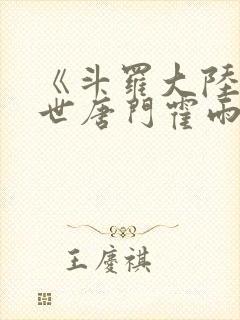 《斗羅大陸
世唐門霍雨
王慶祺